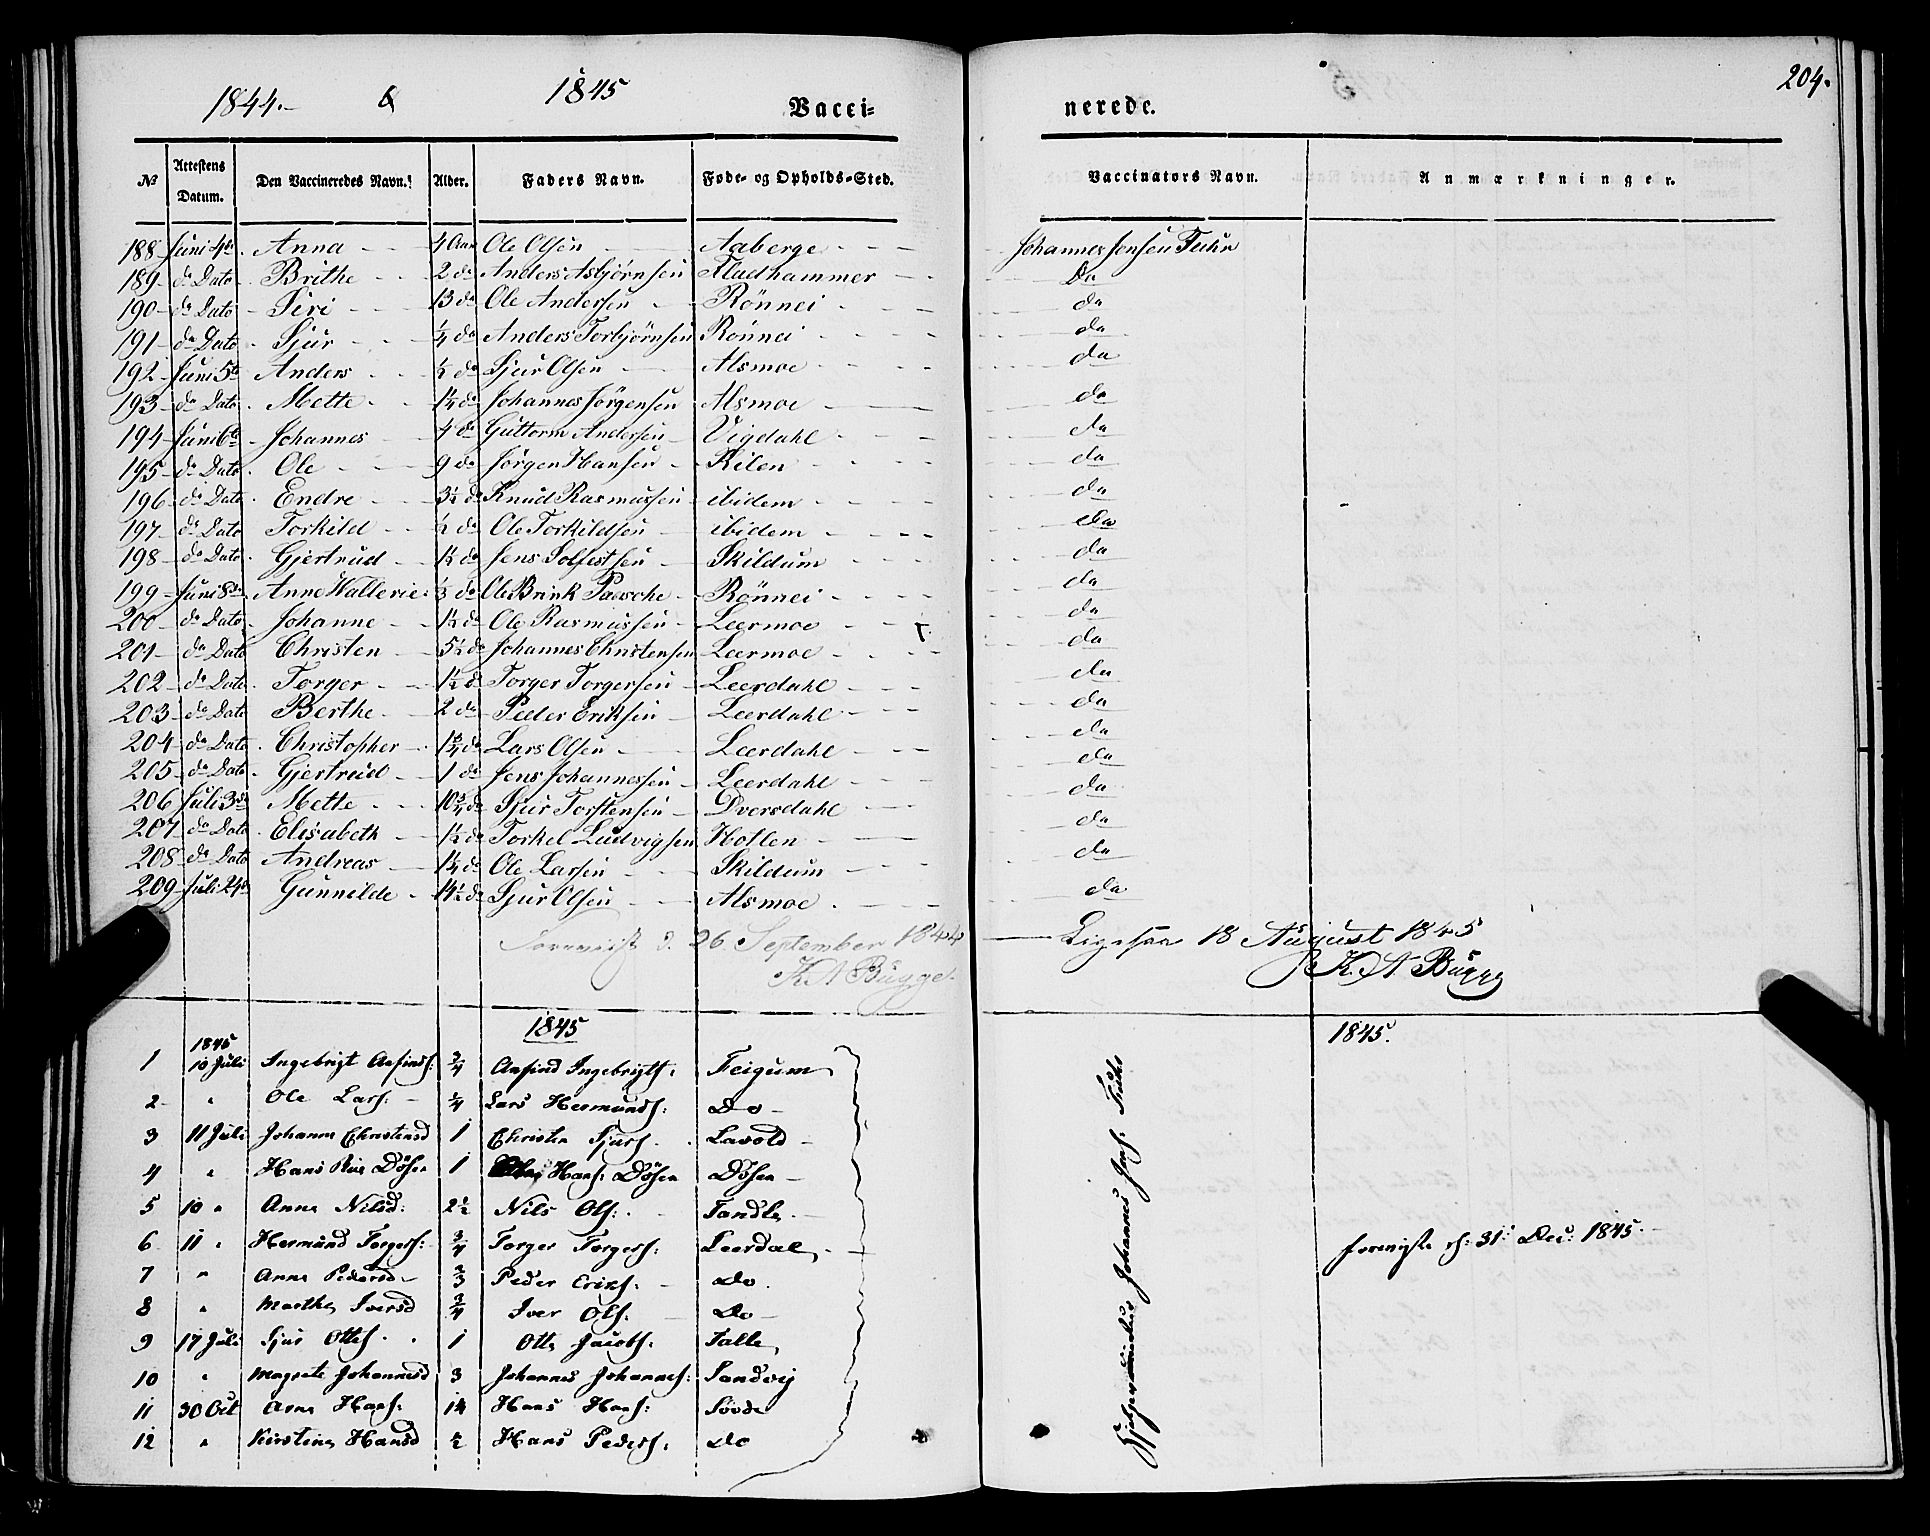 1844. & 1845 Vacci-
nerede. 204.
№ Attestens Datum. Den Vaccineredes Navn. Alder. Faders Navn. Føde- og Opholds-Sted. Vaccinators Navn. Anmærkninger.
188 Juni 4de Anna 4 Aar Ole Olsen Aaberge Johannes Jensen Fuhr
189 do Dato Brithe 2 do Anders Asbjörnsen Fladhammer Do
190 do Dato Siri 13 do Ole Andersen Rönnei do
191 do Dato Sjur 1/4 do Anders Torbjörnsen Rönnei do
192 Juni 5te Anders do Sjur Olsen Alsmoe do
193 do Dato Mette 1 1/4 do Johannes Jörgensen Alsmoe do
194 Juni 6te Johannes 4 do Guttorm Andersen Vigdahl do
195 do Dato Ole 9 do Jörgen Hansen Kilen do
196 do Dato Endre 3 1/2 do Knud Rasmussen ibidem do
197 do Dato Torkild 1/2 do Ole Torkildsen ibidem do
198 do Dato Gjertrud do Jens Solfestsen Skildum do
199 Juni 8de Anne Wallerie 1/3 do Ole Brink Paasche Rönnei do
200 do Dato Johanne 1 1/2 do Ole Rasmussen Leermoe do
201 do Dato Christen 5 1/2 do Johannes Christensen Leermoe do
202 do Dato Torger 1 1/2 do Torger Torgersen Leerdahl do
203 do Dato Berthe 2 do Peder Eriksen Leerdahl do
204 do Dato Christopher 1 3/4 do Lars Olsen Leerdahl do
205 do Dato Gjertrud 1 do Jens Johannessen Leerdahl do
206 Juli 3de Mette 10 3/4 do Sjur Torstensen Dversdahl do
207 do Dato Elisabeth 1 1/2 do Torkel Ludvigsen Hollen do
208 do Dato Andreas 1 1/4 do Ole Larsen Skildum do
209 Juli 24de Gunnilde 14 1/2 do Sjur Olsen Alsmoe do
Foreviist d. 26 September 1844 Ligesaa 18 August 1845
K A Bugge. K. A Bugge
1845 1845.
1845
1 10 Juli Ingebrigt Anfinds: 3/4 Anfind Ingebrigts: Feigum
2 " Ole Lars: 1/4 Lars Hermunds: Do
3 11 Juli Johanne Christensd 1 Christen Sjurs. Lavold
4 " Hans Döser 1 Hans: Döser Döser
5 10 " Anne Nilsd: 2 1/2 Nils Ols: Tandle
6 11 " Hermund Torgers: 3/4 Torger Torgers: Leerdal
7 " Anne Pedersd 2/3 Peder Eriks: do.
8 " Marthe Iversd 3/4 Iver Ols: Do
9 17 Juli Sjur Ottes. 1 Otte Jacobs: Talle
10 " Magrete Johannesd 3 Johannes Johannes: Sandvig
11 30 Oct Arne Hans: 14 Hans Hans: Sövde
12 " Kirstine Hansd 1/2 Hans Peders: do
Hjelpevaccinateur Johannes Jens: Fuhr
foreviiste d: 31: Dec: 1845.